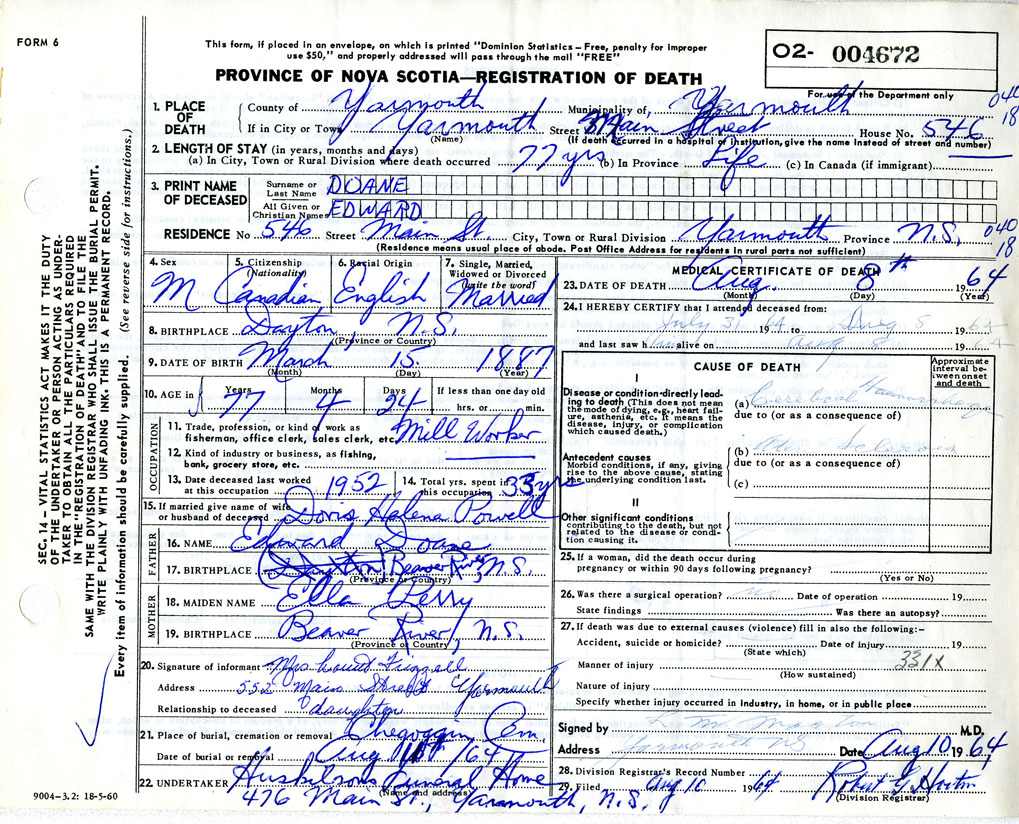 FORM 6
This form, if placed in an envelope, on which is printed "Dominion Statistics – Free, penalty for improper
use $50," and properly addressed will pass through the mail "FREE"
PROVINCE OF NOVA SCOTIA—REGISTRATION OF DEATH
02- 004672
For use of the Department only
040
18
1. PLACE OF DEATH
County of Yarmouth Municipality of, Yarmouth
If in City or Town Yarmouth Street Main Street House No. 546
(Name) (If death occurred in a hospital or institution, give the name instead of street and number)
2. LENGTH OF STAY (in years, months and days)
(a) In City, Town or Rural Division where death occurred 77 yrs (b) In Province Life (c) In Canada (if immigrant)
3. PRINT NAME OF DECEASED
Surname or Last Name DOANE
All Given or Christian Names EDWARD
RESIDENCE No 546 Street Main St City, Town or Rural Division Yarmouth Province N.S.
040
18
(Residence means usual place of abode. Post Office Address for residents in rural parts not sufficient)
4. Sex M
5. Citizenship (Nationality) Canadian
6. Racial Origin English
7. Single, Married, Widowed or Divorced (write the word) Married
8. BIRTHPLACE Dayton N.S.
(Province or Country)
9. DATE OF BIRTH March 15 1887
(Month) (Day) (Year)
10. AGE in Years 77 Months 4 Days 24 If less than one day old hrs. or min.
OCCUPATION
11. Trade, profession, or kind of work as fisherman, office clerk, sales clerk, etc. Mill Worker
12. Kind of industry or business, as fishing, bank, grocery store, etc.
13. Date deceased last worked at this occupation 1952
14. Total yrs. spent in this occupation 33 yrs
15. If married give name of wife or husband of deceased Doris Halena Powell
FATHER
16. NAME Edward Doane
17. BIRTHPLACE Dayton Beaver River, N.S.
(Province or Country)
MOTHER
18. MAIDEN NAME Ella Perry
19. BIRTHPLACE Beaver River, N.S.
(Province or Country)
20. Signature of informant Mrs Frizzell
Address 552 Main Street Yarmouth
Relationship to deceased daughter
21. Place of burial, cremation or removal Chegoggin Cem.
Date of burial or removal Aug 1964
22. UNDERTAKER Huskilson's Funeral Home
(Name and address)
476 Main St., Yarmouth, N.S.
9004-3.2: 18-5-60
MEDICAL CERTIFICATE OF DEATH
23. DATE OF DEATH Aug. 8th 1964
(Month) (Day) (Year)
24. I HEREBY CERTIFY that I attended deceased from:
July 31 1964 to Aug 8 1964
and last saw him alive on Aug 8 1964
CAUSE OF DEATH
Approximate interval between onset and death
I
Disease or condition directly leading to death (This does not mean the mode of dying, e.g., heart failure, asthenia, etc. It means the disease, injury, or complication which caused death.)
(a) Cerebral Haemorrhage
due to (or as a consequence of)
Antecedent causes
Morbid conditions, if any, giving rise to the above cause, stating the underlying condition last.
(b) Sclerosis
due to (or as a consequence of)
(c)
II
Other significant conditions
contributing to the death, but not related to the disease or condition causing it.
25. If a woman, did the death occur during
pregnancy or within 90 days following pregnancy?
(Yes or No)
26. Was there a surgical operation? no Date of operation 19
State findings Was there an autopsy?
27. If death was due to external causes (violence) fill in also the following:–
Accident, suicide or homicide? Date of injury 19
(State which)
331X
Manner of injury
(How sustained)
Nature of injury
Specify whether injury occurred in industry, in home, or in public place
Signed by L. M. M.D.
Address Yarmouth NS Date Aug 10 1964
28. Division Registrar's Record Number
29. Filed Aug 10 1964 Robert G. Horton
(Division Registrar)
SEC. 14 – VITAL STATISTICS ACT MAKES IT THE DUTY
OF THE UNDERTAKER OR PERSON ACTING AS UNDER-
TAKER TO OBTAIN ALL THE PARTICULARS REQUIRED
IN THE "REGISTRATION OF DEATH" AND TO FILE THE
SAME WITH THE DIVISION REGISTRAR WHO SHALL ISSUE THE BURIAL PERMIT.
WRITE PLAINLY WITH UNFADING INK. THIS IS A PERMANENT RECORD.
Every item of information should be carefully supplied. (See reverse side for instructions.)